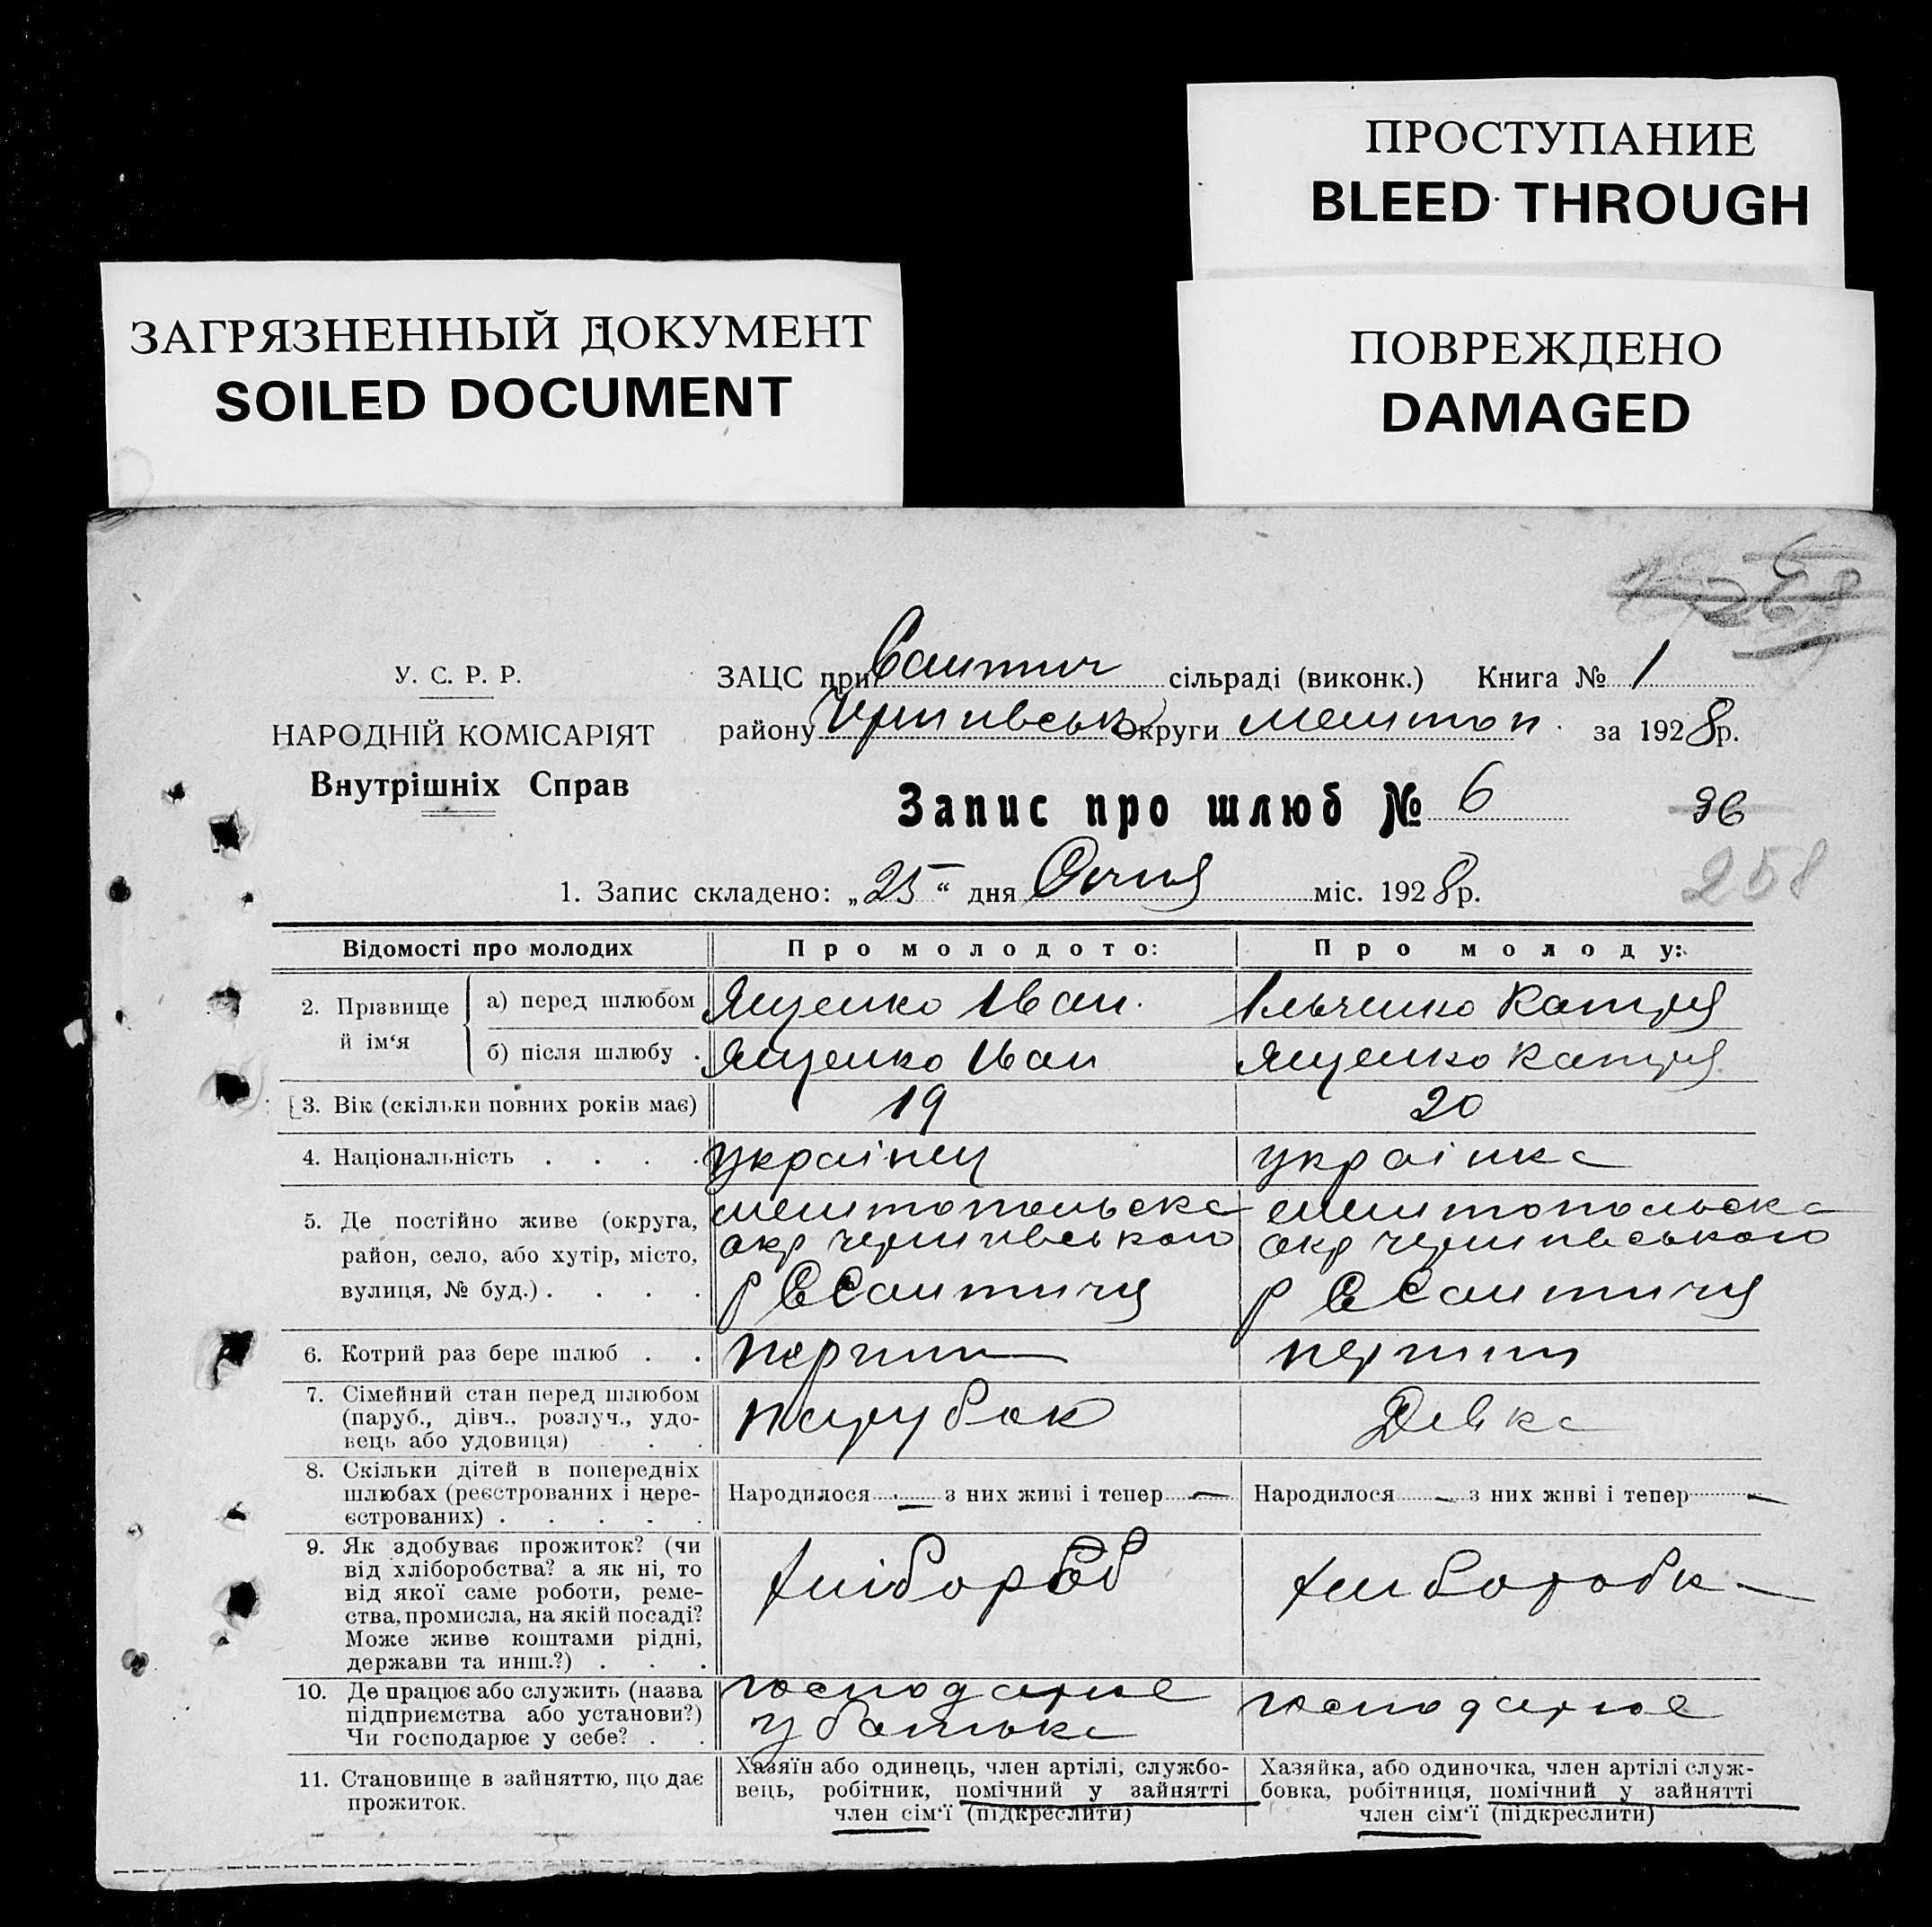 ПРОСТУПАНИЕ
BLEED THROUGH
ЗАГРЯЗНЕННЫЙ ДОКУМЕНТ
SOILED DOCUMENT
ПОВРЕЖДЕНО
DAMAGED
У. С. Р. Р.
НАРОДНІЙ КОМІСАРІЯТ
Внутрішніх Справ
ЗАЦС при сільраді (виконк.) Книга № 1
району округи за 1928р.
Запис про шлюб № 6
96
258
1. Запис складено: „25“ дня Січня міс. 1928р.
Відомості про молодих Про молодого: Про молоду:
2. Прізвище й ім‘я
а) перед шлюбом Ященко Іван. Ільченко Катря
б) після шлюбу . Ященко Іван Ященко Катря
3. Вік (скільки повних років має) 19 20
4. Національність . . . . українец українка
5. Де постійно живе (округа,
район, село, або хутір, місто,
вулиця, № буд.) . . . .
мелитопольска мелитопольска
окр чернивського окр чернивського
р р
6. Котрий раз бере шлюб . . перший перший
7. Сімейний стан перед шлюбом
(паруб., дівч., розлуч., удо-
вець або удовиця) . . .
парубок Дівка
8. Скільки дітей в попередніх
шлюбах (реєстрованих і нере-
єстрованих) . . . . .
Народилося — з них живі і тепер — Народилося — з них живі і тепер —
9. Як здобуває прожиток? (чи
від хліборобства? а як ні, то
від якої саме роботи, реме-
ства, промисла, на якій посаді?
Може живе коштами рідні,
держави та инш.?) . . .
хлібороб хлиборобка
10. Де працює або служить (назва
підприємства або установи?)
Чи господарює у себе? . .
господарює господарює
у батька
11. Становище в зайняттю, що дає
прожиток.
Хазяїн або одинець, член артілі, службо-
вець, робітник, помічний у зайнятті
член сім‘ї (підкреслити)
Хазяйка, або одиночка, член артілі служ-
бовка, робітниця, помічний у зайнятті
член сім‘ї (підкреслити)